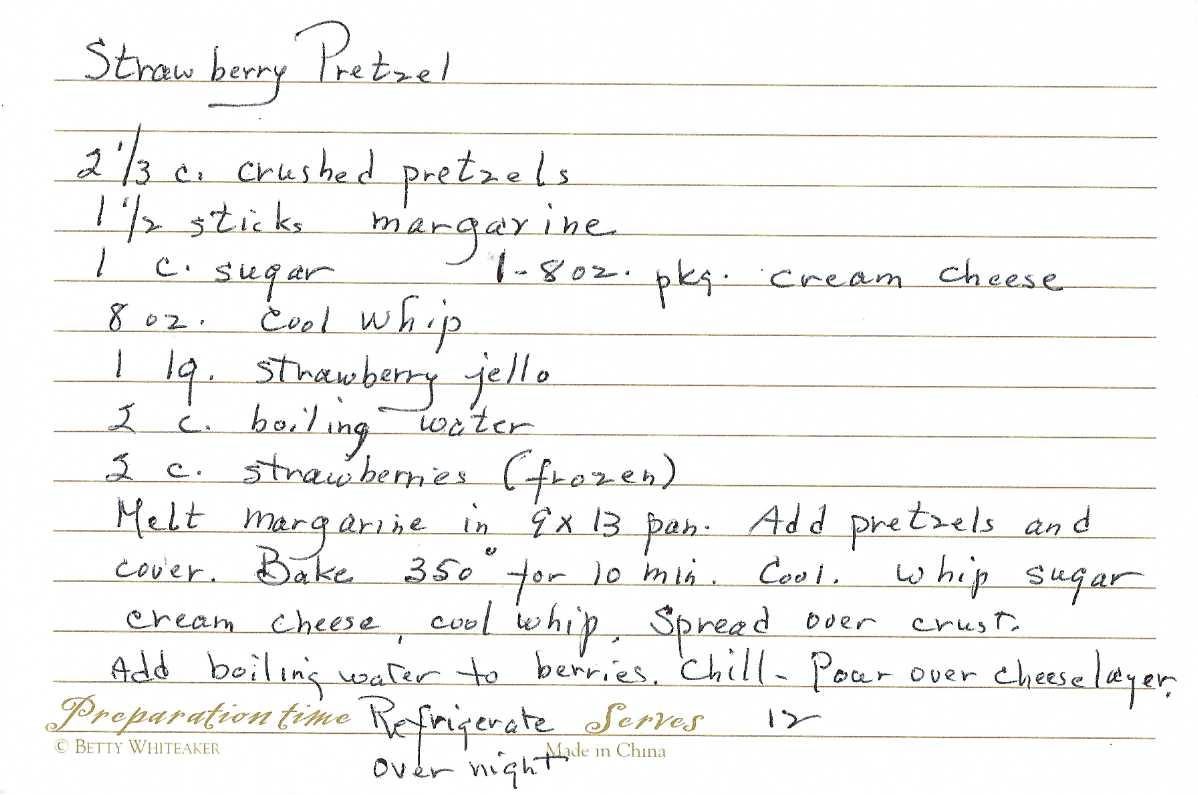 Strawberry Pretzel
2 1/3 c. crushed pretzels
1 1/2 sticks margarine
1 c. sugar 1-8 oz. pkg. cream cheese
8 oz. cool whip
1 lg. strawberry jello
2 c. boiling water
2 c. strawberries (frozen)
Melt margarine in 9x13 pan. Add pretzels and
cover. Bake 350° for 10 min. Cool. Whip sugar
cream cheese, cool whip. Spread over crust.
Add boiling water to berries. Chill - Pour over cheese layer.
Preparation time Refrigerate Serves 12
© BETTY WHITEAKER Made in China
over night